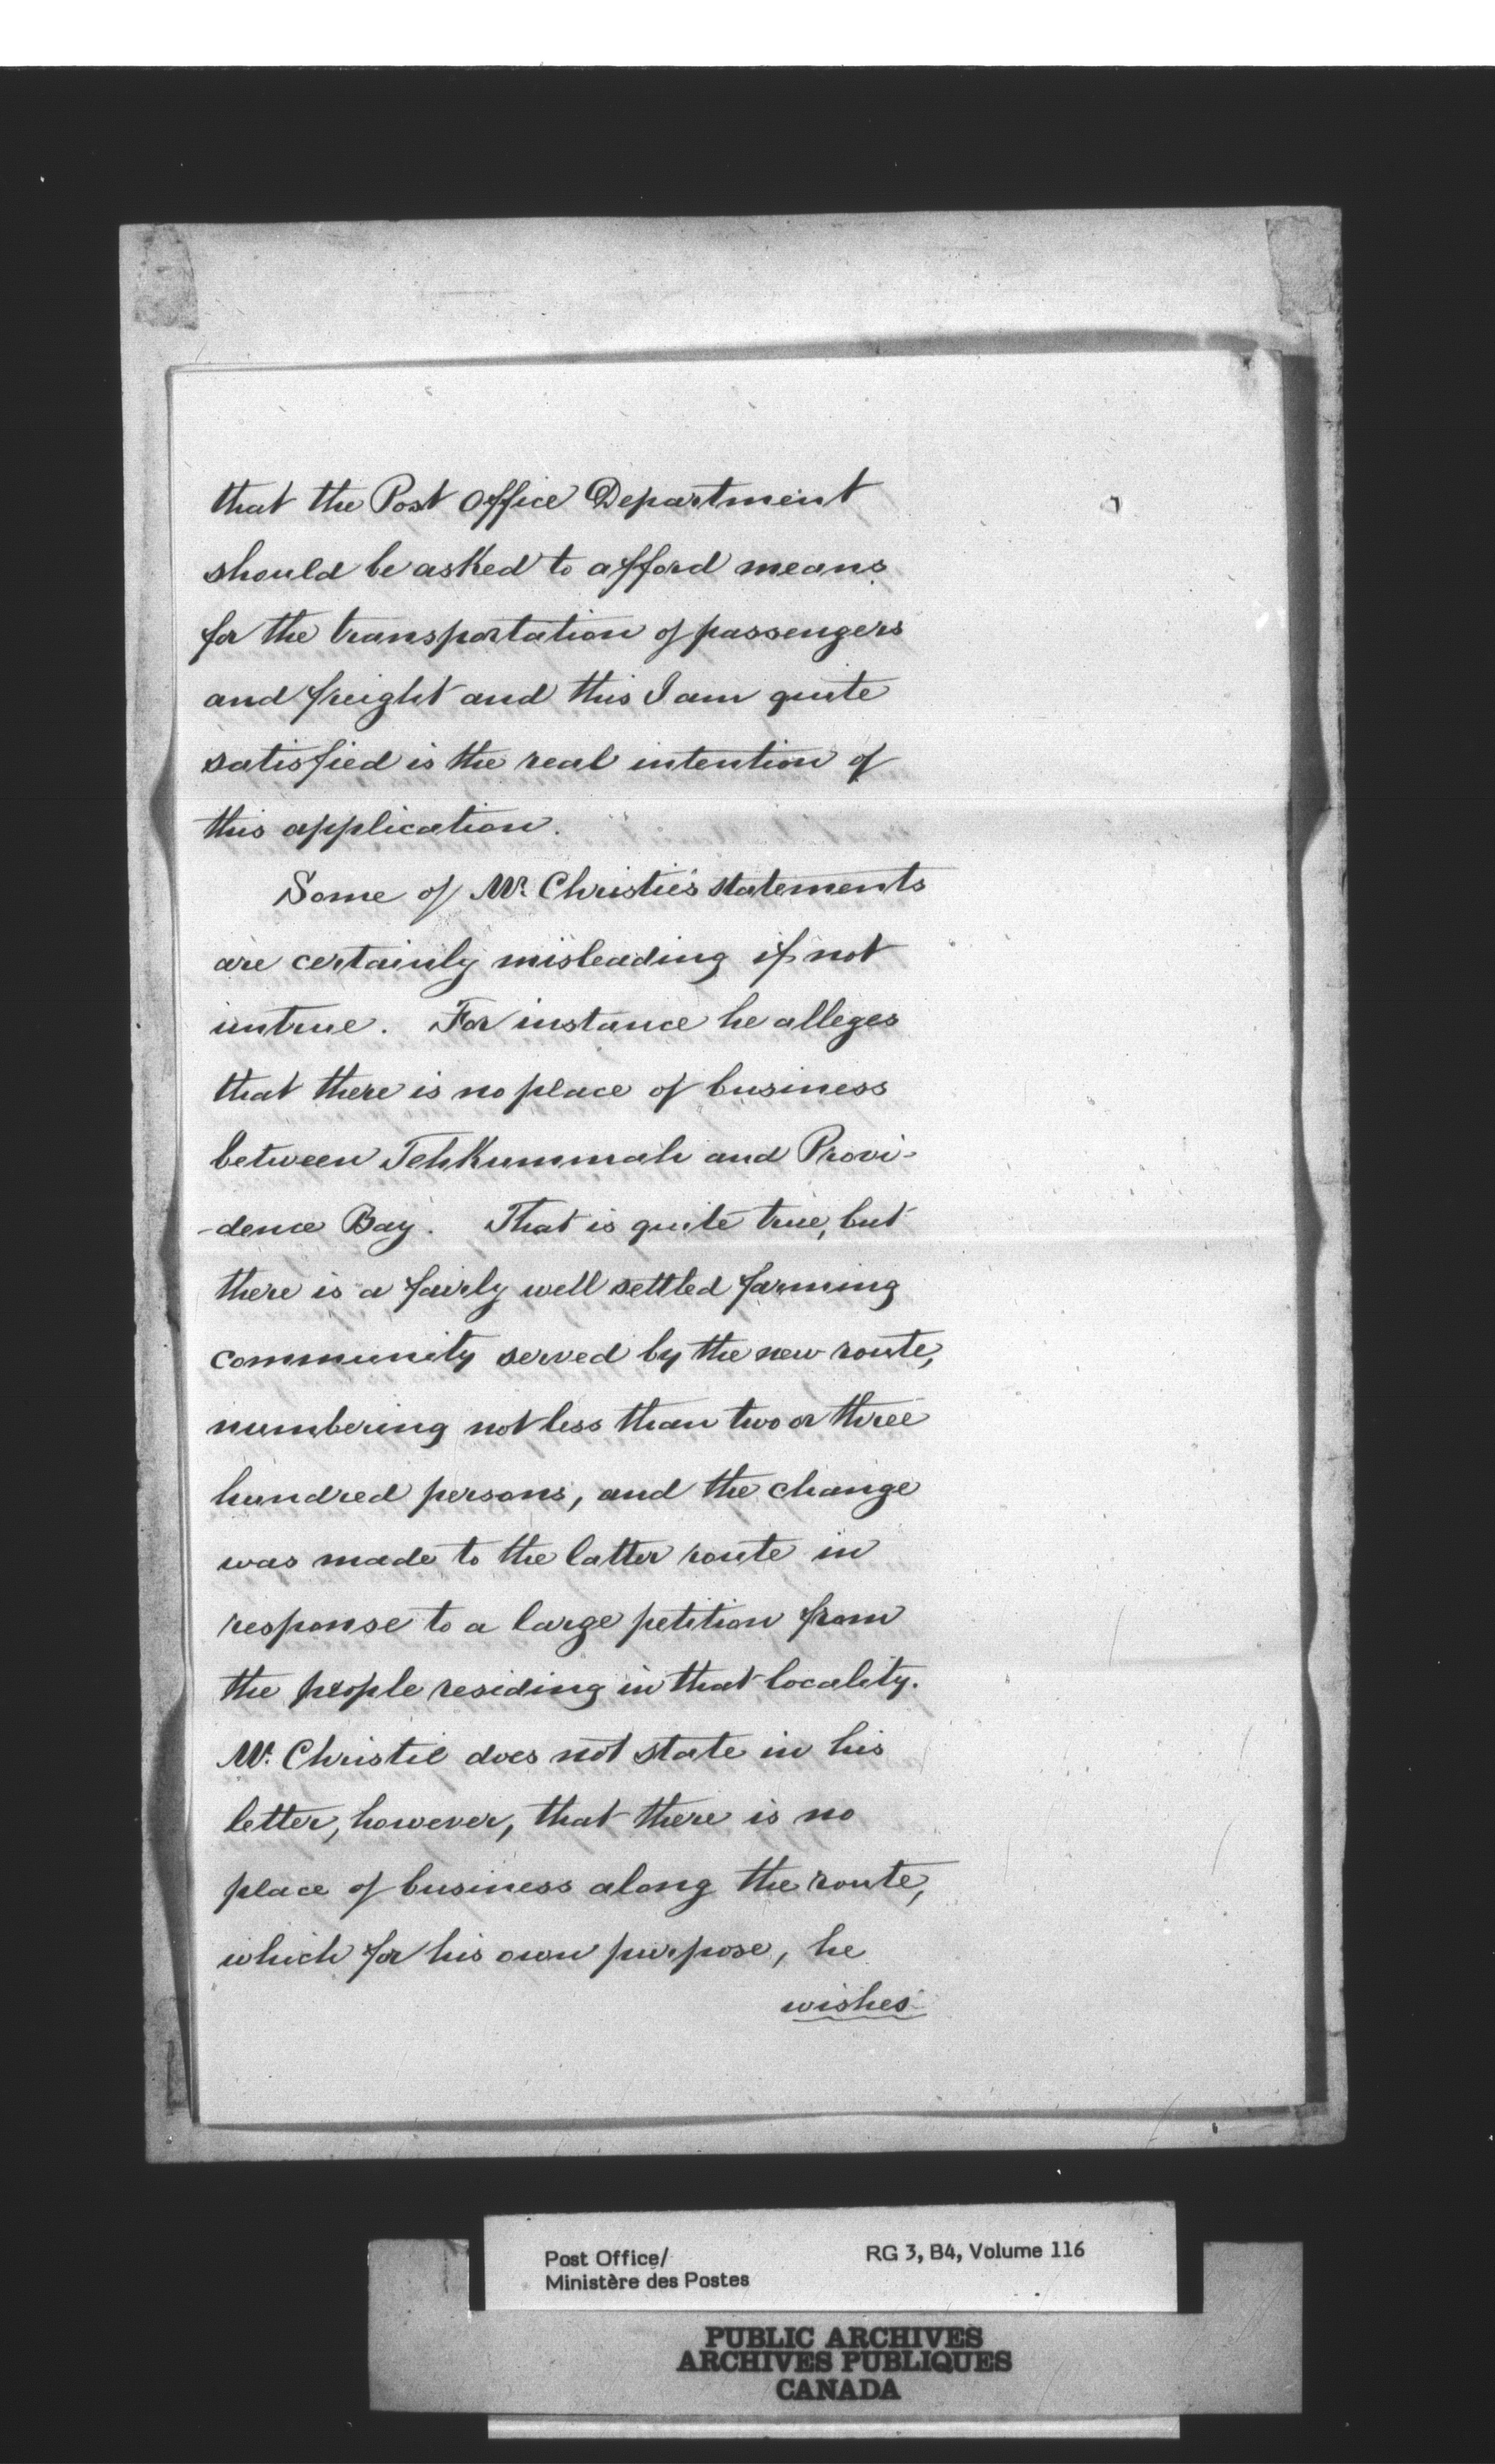 that the Post Office Department
should be asked to afford means
for the transportation of passengers
and freight and this I am quite
satisfied is the real intention of
this application.
Some of Mr. Christie's statements
are certainly misleading if not
untrue. For instance he alleges
that there is no place of business
between Tehkummah and Provi-
-dence Bay. That is quite true, but
there is a fairly well settled farming
community served by the new route,
numbering not less than two or three
hundred persons, and the change
was made to the latter route in
response to a large petition from
the people residing in that locality.
Mr. Christie does not state in his
letter, however, that there is no
place of business along the route,
which for his own purpose, he
wishes
Post Office/
Ministère des Postes
RG 3, B4, Volume 116
PUBLIC ARCHIVES
ARCHIVES PUBLIQUES
CANADA